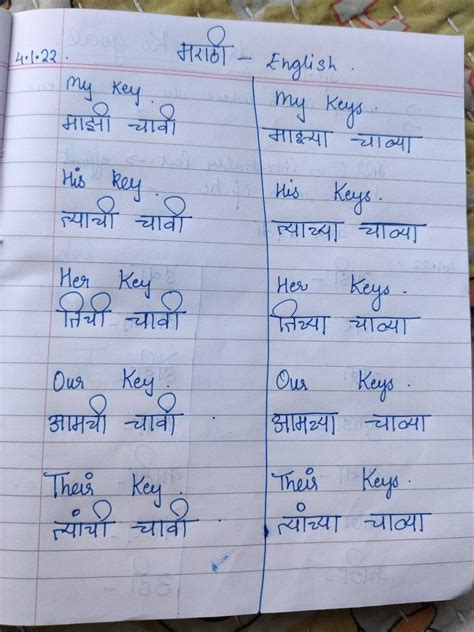 4.1.22
मराठी - English.
My Key.
माझी चावी
His Key.
त्याची चावी
Her Key
तिची चावी
Our Key.
आमची चावी
Their Key.
त्यांची चावी
My Keys.
माझ्या चाव्या
His Keys.
त्याच्या चाव्या
Her Keys.
तिच्या चाव्या
Our Keys.
आमच्या चाव्या
Their Keys.
त्यांच्या चाव्या